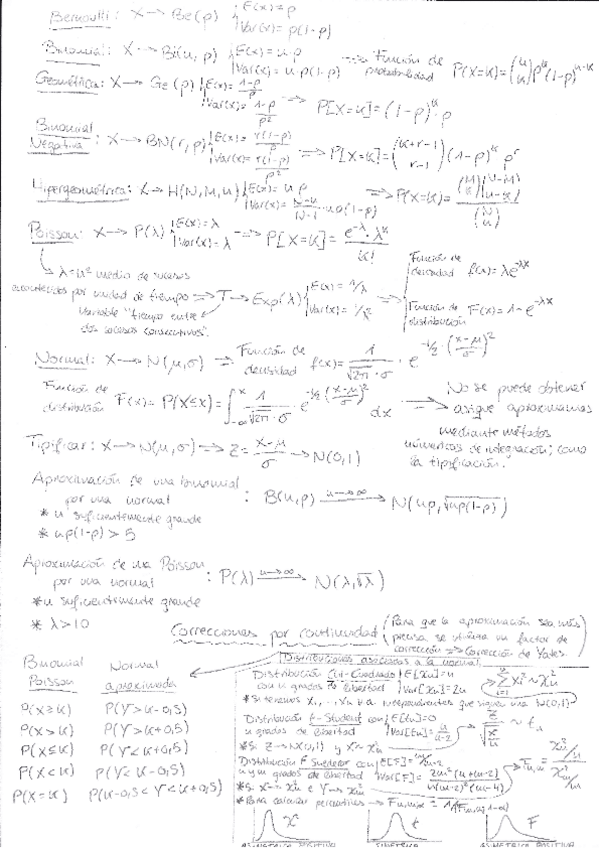 Bernoulli: X → Be(p) {E(x)=p
Var(x)=p(1-p)
Binomial: X → Bi(n,p) {E(x)=n·p
Var(x)=n·p(1-p) → Función de probabilidad P(X=k)=(n k)p^k(1-p)^n-k
Geométrica: X → Ge(p) {E(x)=1-p/p
Var(x)=1-p/p² → P[X=k]=(1-p)^k·p
Binomial Negativa: X → BN(r,p) {E(x)=r(1-p)/p
Var(x)=r(1-p)/p² ⇒ P[X=k]=(k+r-1 r-1)(1-p)^k p^r
Hipergeométrica: X → H(N,M,n) {E(x)=n·p
Var(x)=N-n/N-1·n·p(1-p) ⇒ P(X=k)=(M k)(N-M n-k)/(N n)
Poisson: X → P(λ) {E(x)=λ
Var(x)=λ → P[X=k]=e^-λ·λ^k/k!
λ=nº medio de sucesos
acontecidos por unidad de tiempo ⇒ T → Exp(λ) {E(x)=1/λ
Var(x)=1/λ² ⇒ Función de densidad f(x)=λe^-λx
Función de distribución F(x)=1-e^-λx
Variable "tiempo entre
dos sucesos consecutivos".
Normal: X → N(μ,σ) ⇒ Función de densidad f(x)=1/√2π·σ · e^-1/2·(x-μ/σ)²
Función de distribución F(x)=P(X≤x)=∫ 1/√2π·σ · e^-1/2(x-μ/σ)² dx ⇒ No se puede obtener
así que aproximamos
mediante métodos
númericos de integración; como
la tipificación.
Tipificar: X → N(μ,σ) → Z=x-μ/σ → N(0,1)
Aproximación de una binomial
por una normal : B(n,p) n→∞ N(np,√np(1-p))
* n suficientemente grande
* np(1-p)>5
Aproximación de una Poisson
por una normal : P(λ) n→∞ N(λ,√λ)
* n suficientemente grande
* λ>10
Correcciones por continuidad (Para que la aproximación sea más
precisa se utiliza un factor de
corrección ⇒ Corrección de Yates.)
Binomial Normal
Poisson aproximada
P(X≥k) P(Y>k-0,5)
P(X>k) P(Y>k+0,5)
P(X≤k) P(Y<k+0,5)
P(X<k) P(Y<k-0,5)
P(X=k) P(k-0,5<Y<k+0,5)
Distribuciones asociadas a la normal
Distribución Chi-Cuadrado {E[Xn]=n
con n grados de libertad Var[Xn]=2n
* Si tenemos X₁,...,Xn v.a independientes que siguen una N(0,1)
Distribución t-Student con {E[tn]=0
n grados de libertad Var[tn]=n/n-2
* Si Z → N(0,1) y
Distribución F Snedecor con
n y m grados de libertad
* Para calcular
χ² t F
ASIMÉTRICA POSITIVA SIMÉTRICA ASIMÉTRICA POSITIVA